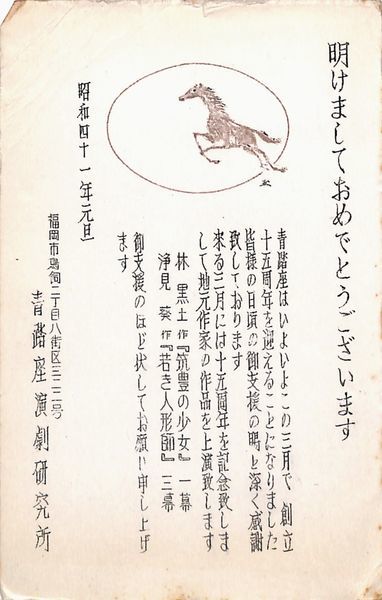 明けましておめでとうございます
青踏座はいよいよこの三月で 創立
十五周年を迎えることになりました
皆様の日頃の御支援の賜と深く感謝
致しております
来る三月には十五周年を記念致しま
して地元作家の作品を上演致します
林 黒土 作『筑豊の少女』一幕
浄見 葵 作『若き人形師』三幕
御支援のほど伏してお願い申し上げ
ます
昭和四十一年元旦
福岡市鳥飼二丁目八街区三二二号
青踏座演劇研究所